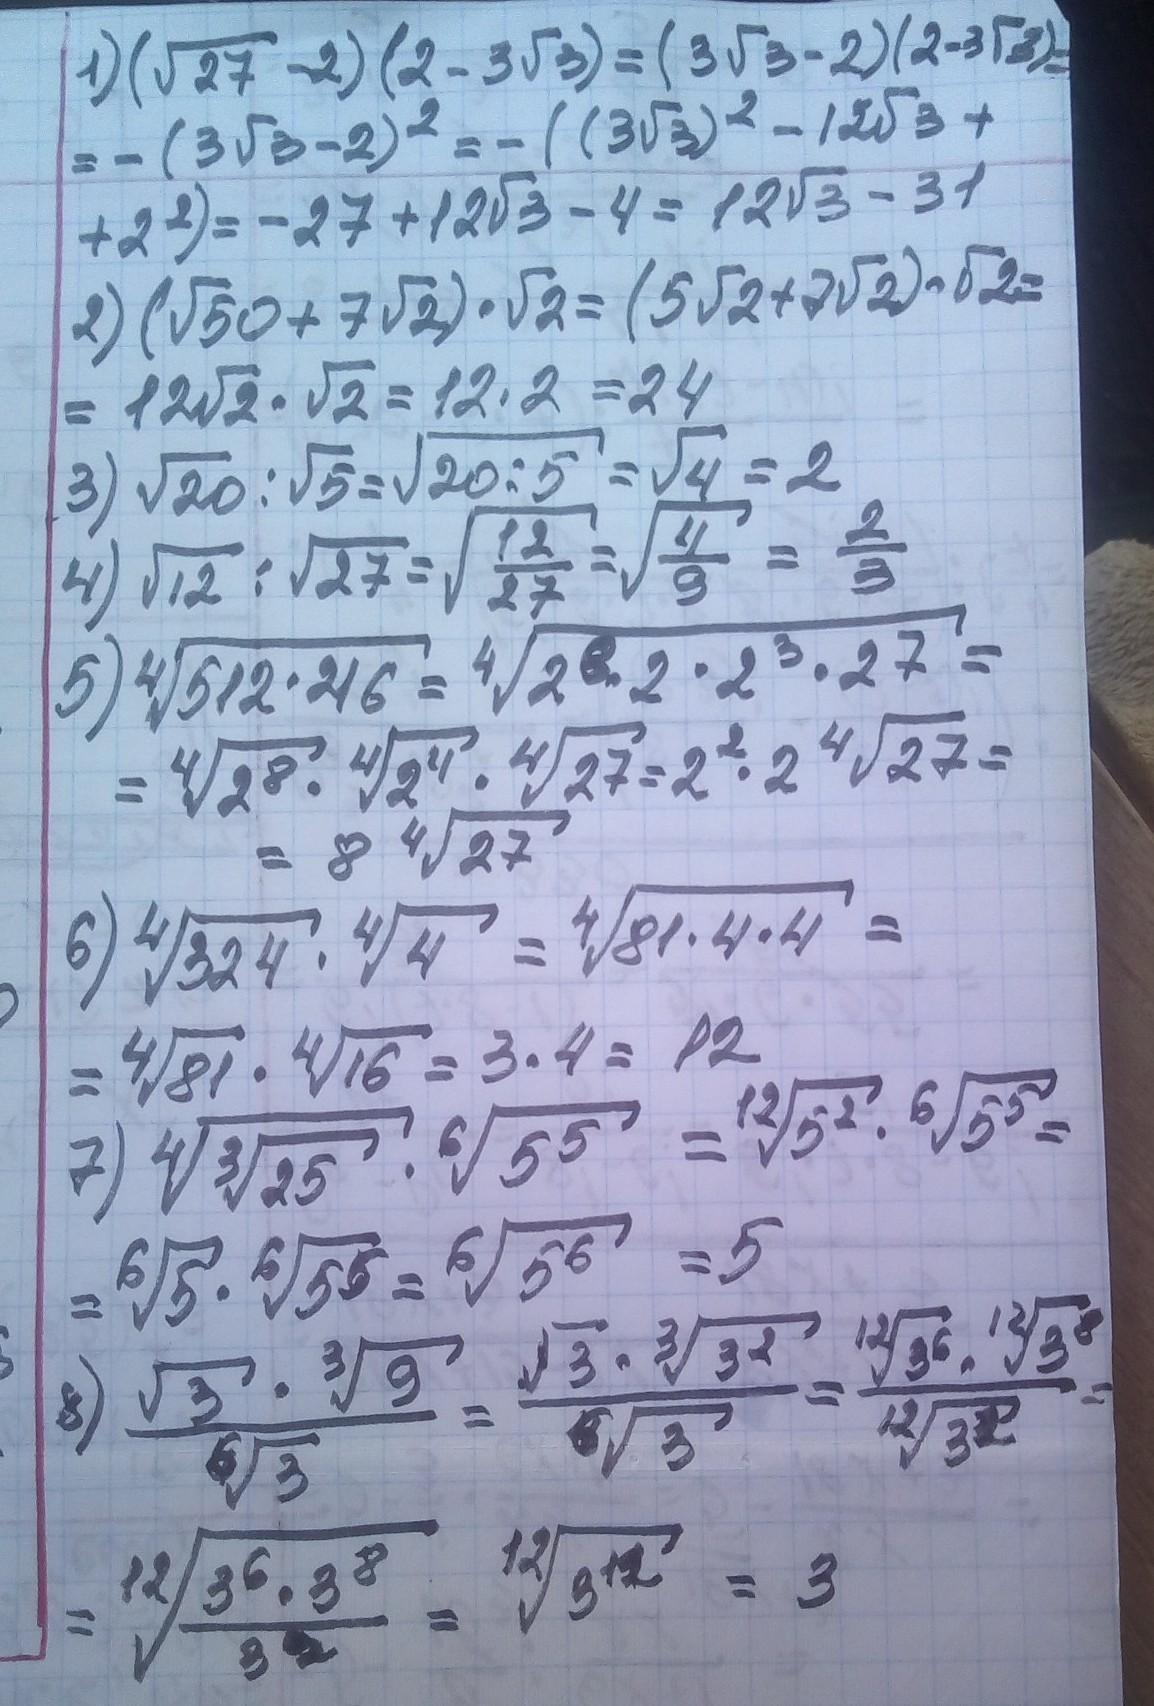 1) (√27 - 2)(2 - 3√3) = (3√3 - 2)(2 - 3√3) =
= - (3√3 - 2)² = - ((3√3)² - 12√3 +
+ 2²) = - 27 + 12√3 - 4 = 12√3 - 31
2) (√50 + 7√2) · √2 = (5√2 + 7√2) · √2 =
= 12√2 · √2 = 12 · 2 = 24
3) √20 : √5 = √(20 : 5) = √4 = 2
4) √12 : √27 = √(12/27) = √(4/9) = 2/3
5) ⁴√(512 · 216) = ⁴√(2⁸ · 2 · 2³ · 27) =
= ⁴√2⁸ · ⁴√2⁴ · ⁴√27 = 2² · 2 ⁴√27 =
= 8 ⁴√27
6) ⁴√324 · ⁴√4 = ⁴√(81 · 4 · 4) =
= ⁴√81 · ⁴√16 = 3 · 4 = 12
7) ⁴√(³√25) · ⁶√5⁵ = ¹²√5² · ⁶√5⁵ =
= ⁶√5 · ⁶√5⁵ = ⁶√5⁶ = 5
8) (√3 · ³√9)/⁶√3 = (√3 · ³√3²)/⁶√3 = (¹²√3⁶ · ¹²√3⁸)/¹²√3² =
= ¹²√((3⁶ · 3⁸)/3²) = ¹²√3¹² = 3